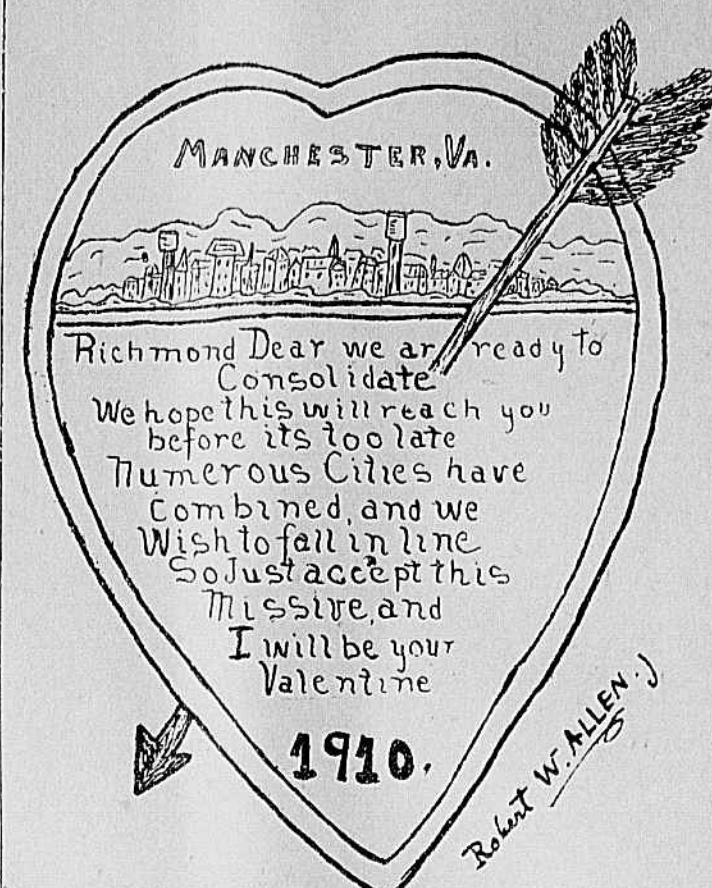 MANCHESTER, VA.
Richmond Dear we ar ready to
Consolidate
We hope this will reach you
before its too late
Numerous Cities have
Combined, and we
Wish to fall in line
So Just accept this
Missive, and
I will be your
Valentine
1910.
Robert W. ALLEN. J